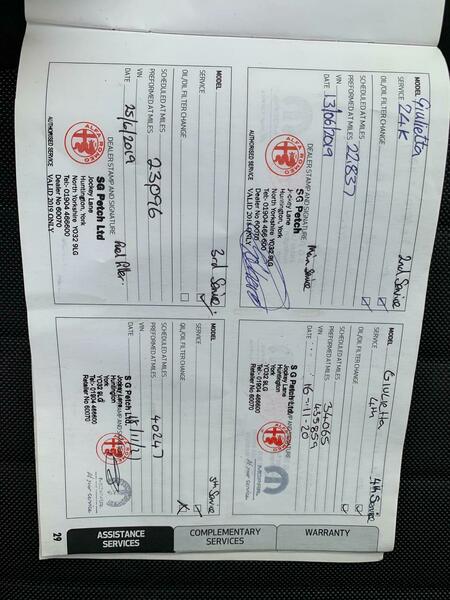 MODEL Giulietta
24K 2nd Service
SERVICE
OIL/OIL FILTER CHANGE
SCHEDULED AT MILES
PREFORMED AT MILES 22837
VIN
DATE 13/06/2019
DEALER STAMP AND SIGNATURE Main Service
SG Petch
Jockey Lane
Huntington, York
North Yorkshire YO32 9LG
Tel: 01904 466600
Dealer No 60070
VALID 2019 ONLY
AUTHORISED SERVICE
ALFA ROMEO
MODEL 3rd Service
SERVICE
OIL/OIL FILTER CHANGE
SCHEDULED AT MILES
PREFORMED AT MILES 23096
VIN
DATE 25/6/2019
DEALER STAMP AND SIGNATURE
SG Petch Ltd
Jockey Lane
Huntington, York
North Yorkshire YO32 9LG
Tel: 01904 466600
Dealer No 60070
VALID 2019 ONLY
AUTHORISED SERVICE
ALFA ROMEO
MODEL Giulietta
4th 4th Service
SERVICE
OIL/OIL FILTER CHANGE
SCHEDULED AT MILES
PREFORMED AT MILES 34065
VIN 435859
DATE 16-11-20
SG Petch Ltd
Jockey Lane
Huntington
York
YO32 9LG
Tel: 01904 466600
Retailer No 60070
MOPAR
At your service
MODEL 5th Service
SERVICE
OIL/OIL FILTER CHANGE
SCHEDULED AT MILES
PREFORMED AT MILES 40247
VIN
DATE 18/11/21
SG Petch Ltd
Jockey Lane
Huntington
York
YO32 9LG
Tel: 01904 466600
Retailer No 60070
MOPAR
At your service
WARRANTY
COMPLEMENTARY
SERVICES
ASSISTANCE
SERVICES
29